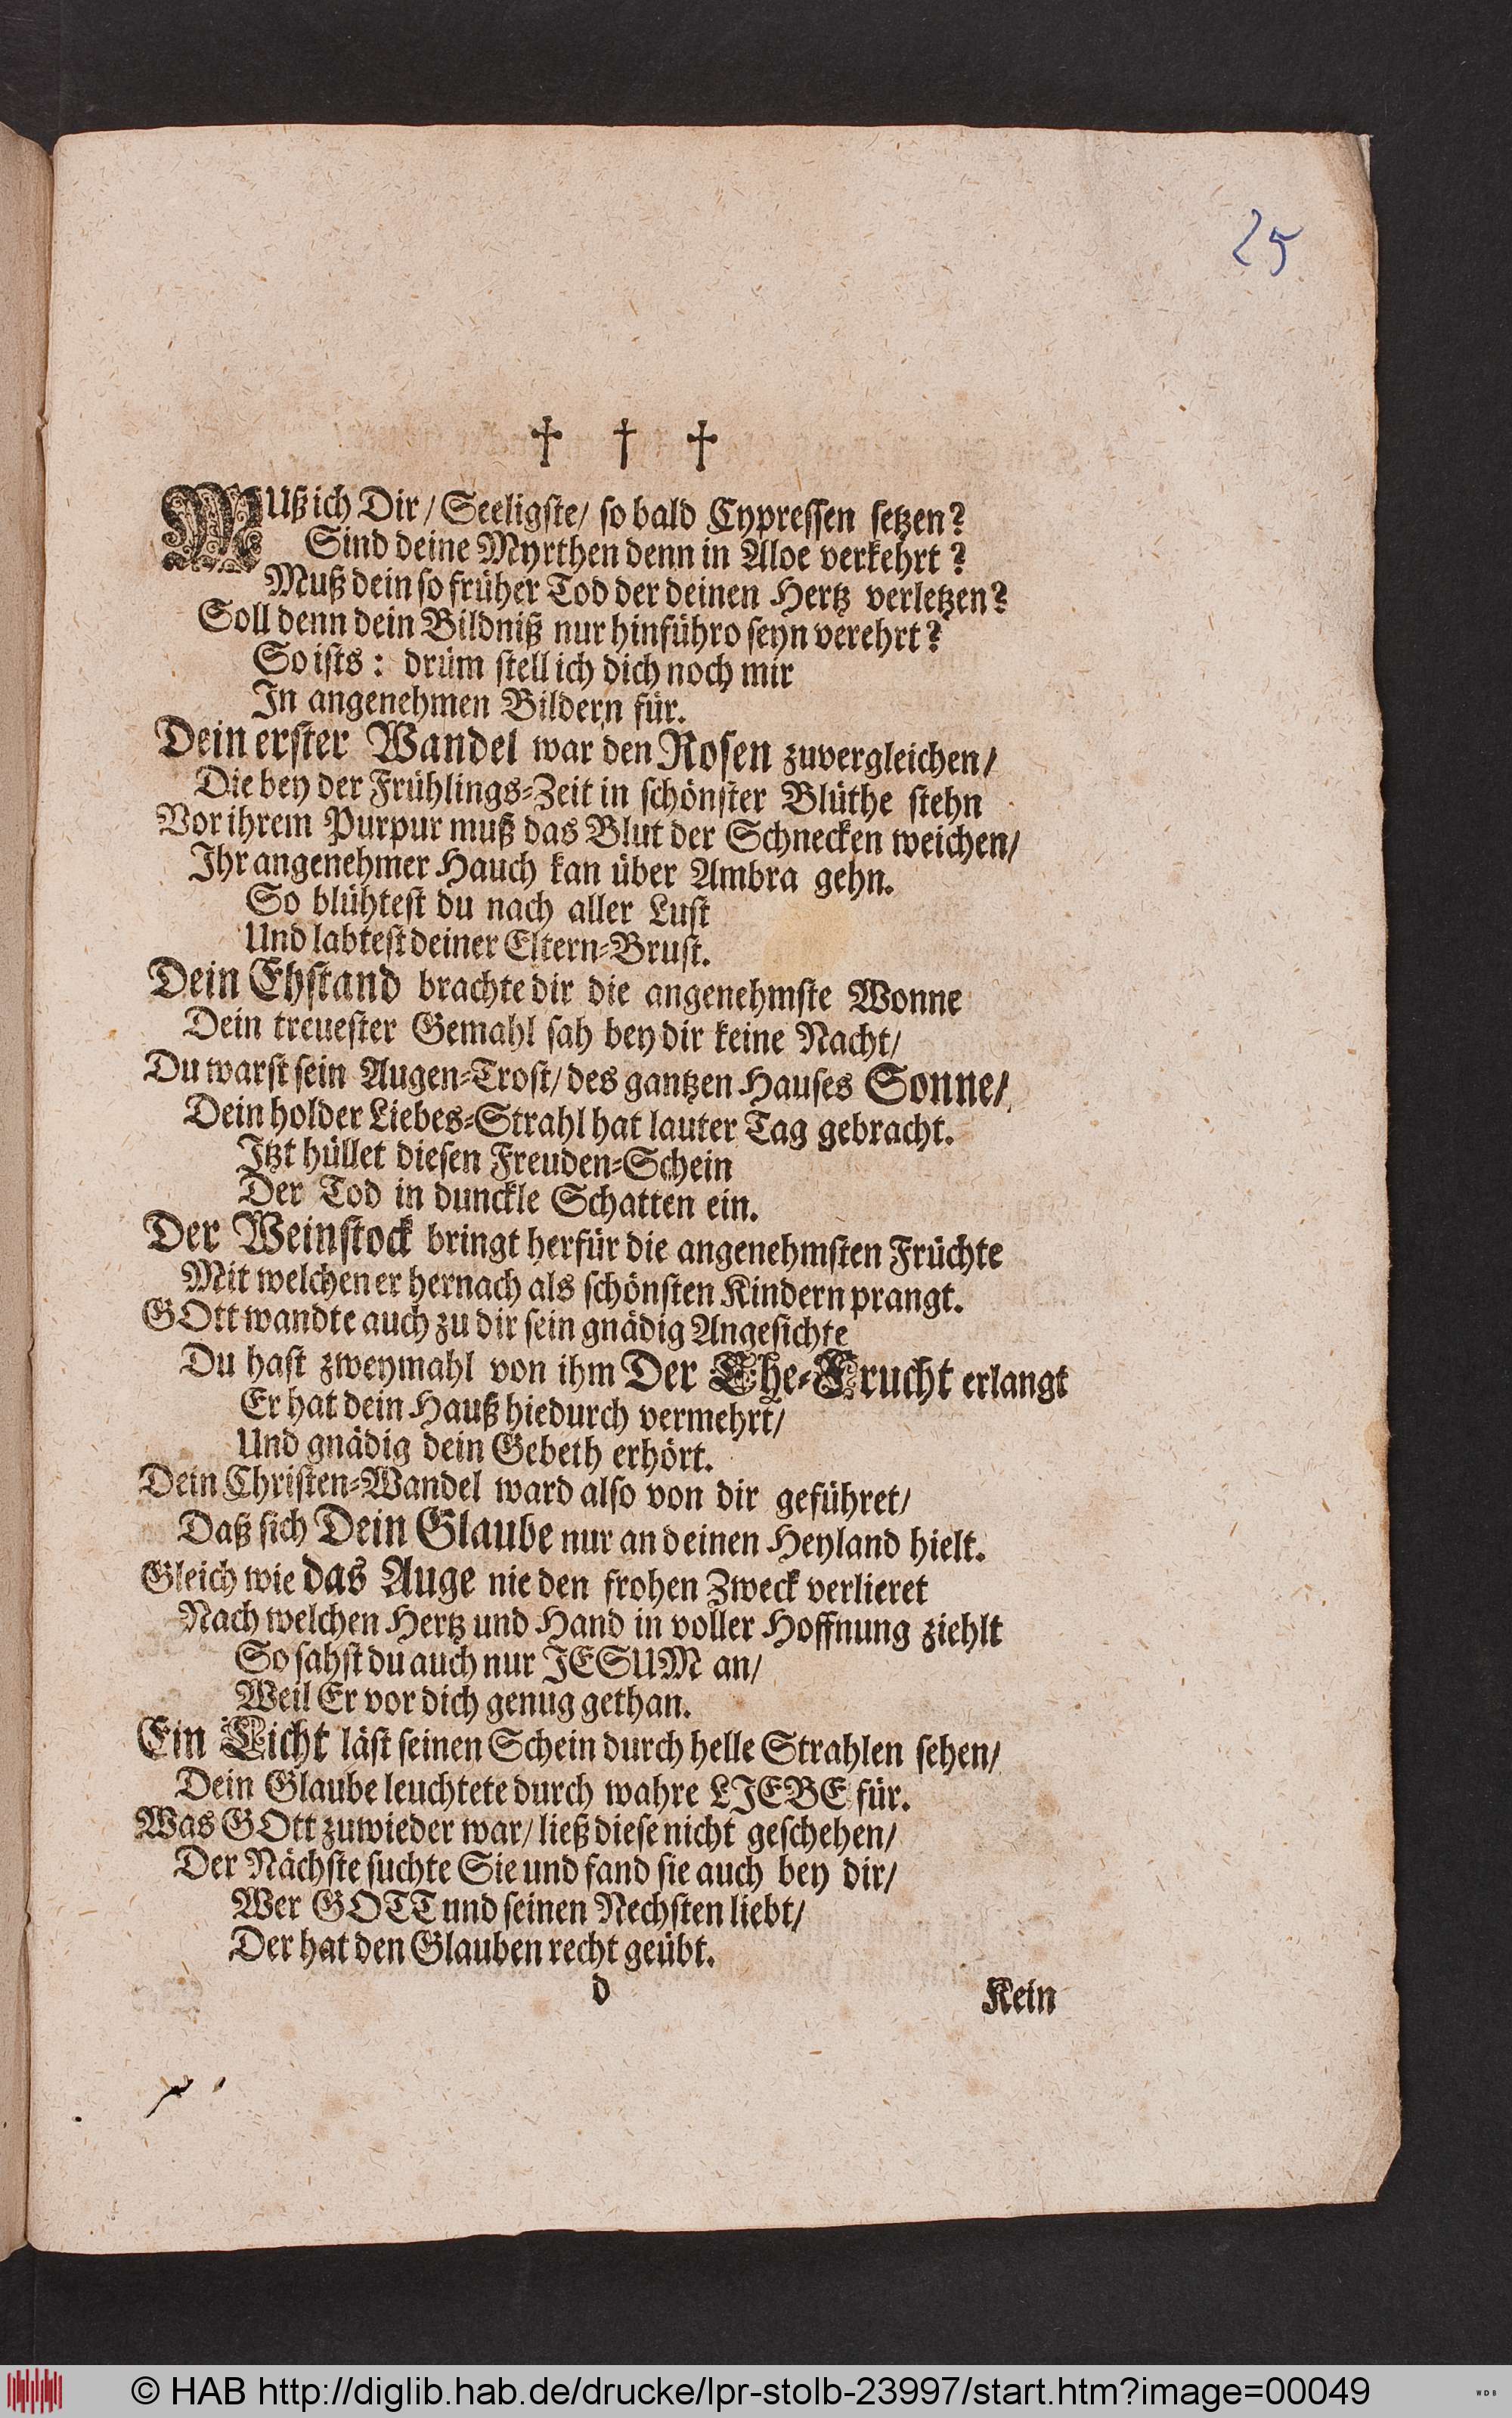 25
† † †
MUß ich Dir / Seeligste / so bald Cypressen setzen?
Sind deine Myrthen denn in Aloe verkehrt?
Muß dein so früher Tod der deinen Hertz verletzen?
Soll denn dein Bildniß nur hinführo seyn verehrt?
So ists: drüm stell ich dich noch mir
In angenehmen Bildern für.
Dein erster Wandel war den Rosen zuvergleichen /
Die bey der Frühlings-Zeit in schönster Blüthe stehn
Vor ihrem Purpur muß das Blut der Schnecken weichen /
Ihr angenehmer Hauch kan über Ambra gehn.
So blühtest du nach aller Lust
Und labtest deiner Eltern-Brust.
Dein Ehstand brachte dir die angenehmste Wonne
Dein treuester Gemahl sah bey dir keine Nacht /
Du warst sein Augen-Trost / des gantzen Hauses Sonne /
Dein holder Liebes-Strahl hat lauter Tag gebracht.
Itzt hüllet diesen Freuden-Schein
Der Tod in dunckle Schatten ein.
Der Weinstock bringt herfür die angenehmsten Früchte
Mit welchen er hernach als schönsten Kindern prangt.
GOtt wandte auch zu dir sein gnädig Angesichte
Du hast zweymahl von ihm Der Ehe-Frucht erlangt
Er hat dein Hauß hiedurch vermehrt /
Und gnädig dein Gebeth erhört.
Dein Christen-Wandel ward also von dir geführet /
Daß sich Dein Glaube nur an deinen Heyland hielt.
Gleich wie das Auge nie den frohen Zweck verlieret
Nach welchen Hertz und Hand in voller Hoffnung ziehlt
So sahst du auch nur JESUM an /
Weil Er vor dich genug gethan.
Ein Licht läst seinen Schein durch helle Strahlen sehen /
Dein Glaube leuchtete durch wahre LIEBE für.
Was GOtt zuwieder war / ließ diese nicht geschehen /
Der Nächste suchte Sie und fand sie auch bey dir /
Wer GOTT und seinen Nechsten liebt /
Der hat den Glauben recht geübt.
d
Kein
© HAB http://diglib.hab.de/drucke/lpr-stolb-23997/start.htm?image=00049
WDB